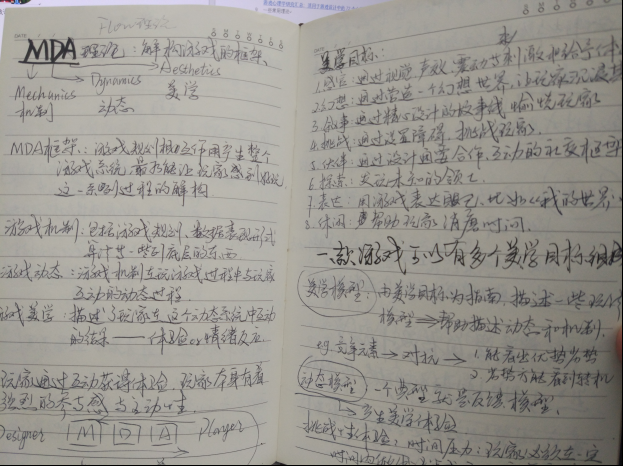 Flow理论
MDA理论:解构游戏的框架。
Aesthetics
Dynamics 美学
Mechanics 动态
机制
MDA框架:游戏规则相互作用产生整个
游戏系统,最终能让玩家感到
这一系列过程的解构
游戏机制:包括游戏规则、数据表现形式
算法等一些到底层的东西
游戏动态:游戏机制在玩游戏过程中与玩家
互动的动态过程.
游戏美学:描述了玩家在这个动态系统中互动
的结果——体验or情绪反应.
玩家通过互动获得体验,玩家本身有着
强烈的参与感与主动性.
Designer M D A Player
美学目标:
1.感官:通过视觉、声效、震动等刺激来给予体
2.幻想:通过营造一个幻想世界,让玩家沉浸
3.叙事:通过精心设计的故事线愉悦玩家
4.挑战:通过设置障碍,挑战玩家.
5.伙伴:通过设计需要合作、互动的社交框架
6.探索:发现未知的领土.
7.表达:用游戏表达自己,比如《我的世界
8.休闲:帮助玩家消磨时间.
一款游戏可以有多个美学目标
美学模型:由美学目标为指南,描述一些
模型⇒帮助描述动态和机制.
竞争元素→对抗→1.能看出优势劣势
2.劣势方能看到转机
动态模型:一个典型就是反馈模型.
产生美学体验
挑战性体验:时间压力:玩家必须在一定
时间内